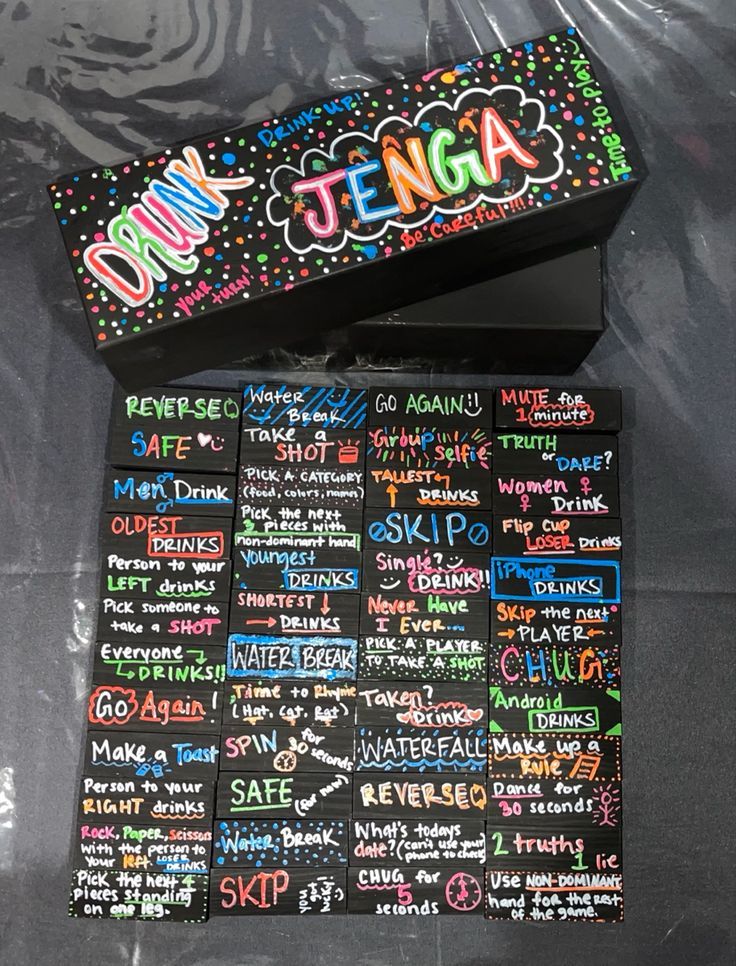 DRINK UP!
Time to play
DRUNK
JENGA
Be Careful!!!
your turn!
REVERSE
SAFE
Men Drink
OLDEST
DRINKS
Person to your
LEFT drinks
Pick someone to
take a SHOT
Everyone
DRINKS!!
Go Again!
Make a Toast
Person to your
RIGHT drinks
Rock, Paper, Scissors
with the person to
your left. LOSER
DRINKS
Pick the next 4
pieces standing
on one leg.
Water
Break
Take a
SHOT
PICK A CATEGORY
(food, colors, names)
Pick the next
3 pieces with
non-dominant hand
Youngest
DRINKS
SHORTEST
DRINKS
WATER BREAK
Time to Rhyme
(Hat, Cat, Rat)
SPIN for
30 seconds
SAFE (for now)
Water Break
SKIP you got lucky!
GO AGAIN!!
Group Selfie
TALLEST
DRINKS
SKIP
Single?
DRINK!!
Never Have
I Ever...
PICK A PLAYER
TO TAKE A SHOT
Taken?
Drink
WATERFALL
REVERSE
What's todays
date? (can't use your
phone to check)
CHUG for
5
seconds
MUTE for
1 minute
TRUTH
or DARE?
Women
Drink
Flip Cup
LOSER Drinks
iPhone
DRINKS
Skip the next
PLAYER
CHUG
Android
DRINKS
Make up a
RULE
Dance for
30 seconds
2 truths
1 lie
Use NON-DOMINANT
hand for the rest
of the game.